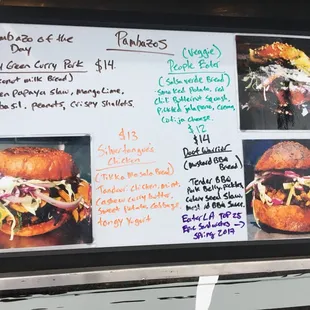 Pambazos
bazo of the
Day
Green Curry Pork $14
onut milk Bread)
en Papaya slaw, mango, lime,
basil, peanuts, crispy shallots
(Veggie)
People Eater
(Salsa verde Bread)
smoked Potato, red
chili Butternut Squash,
pickled jalapeno, crema,
cotija cheese
$12
$13
Silvertongue's
Chicken
(Tikka Masala Bread)
Tandoori chicken, mint,
cashew curry butter,
sweet potato cabbage,
tangy yogurt
$14
Doof Warrior
(Mustard BBQ
Bread)
Tender BBQ
Pork Belly, pickles,
celery seed slaw,
mustard BBQ Sauce
Eater LA Top 25
Epic Sandwiches →
Spring 2017